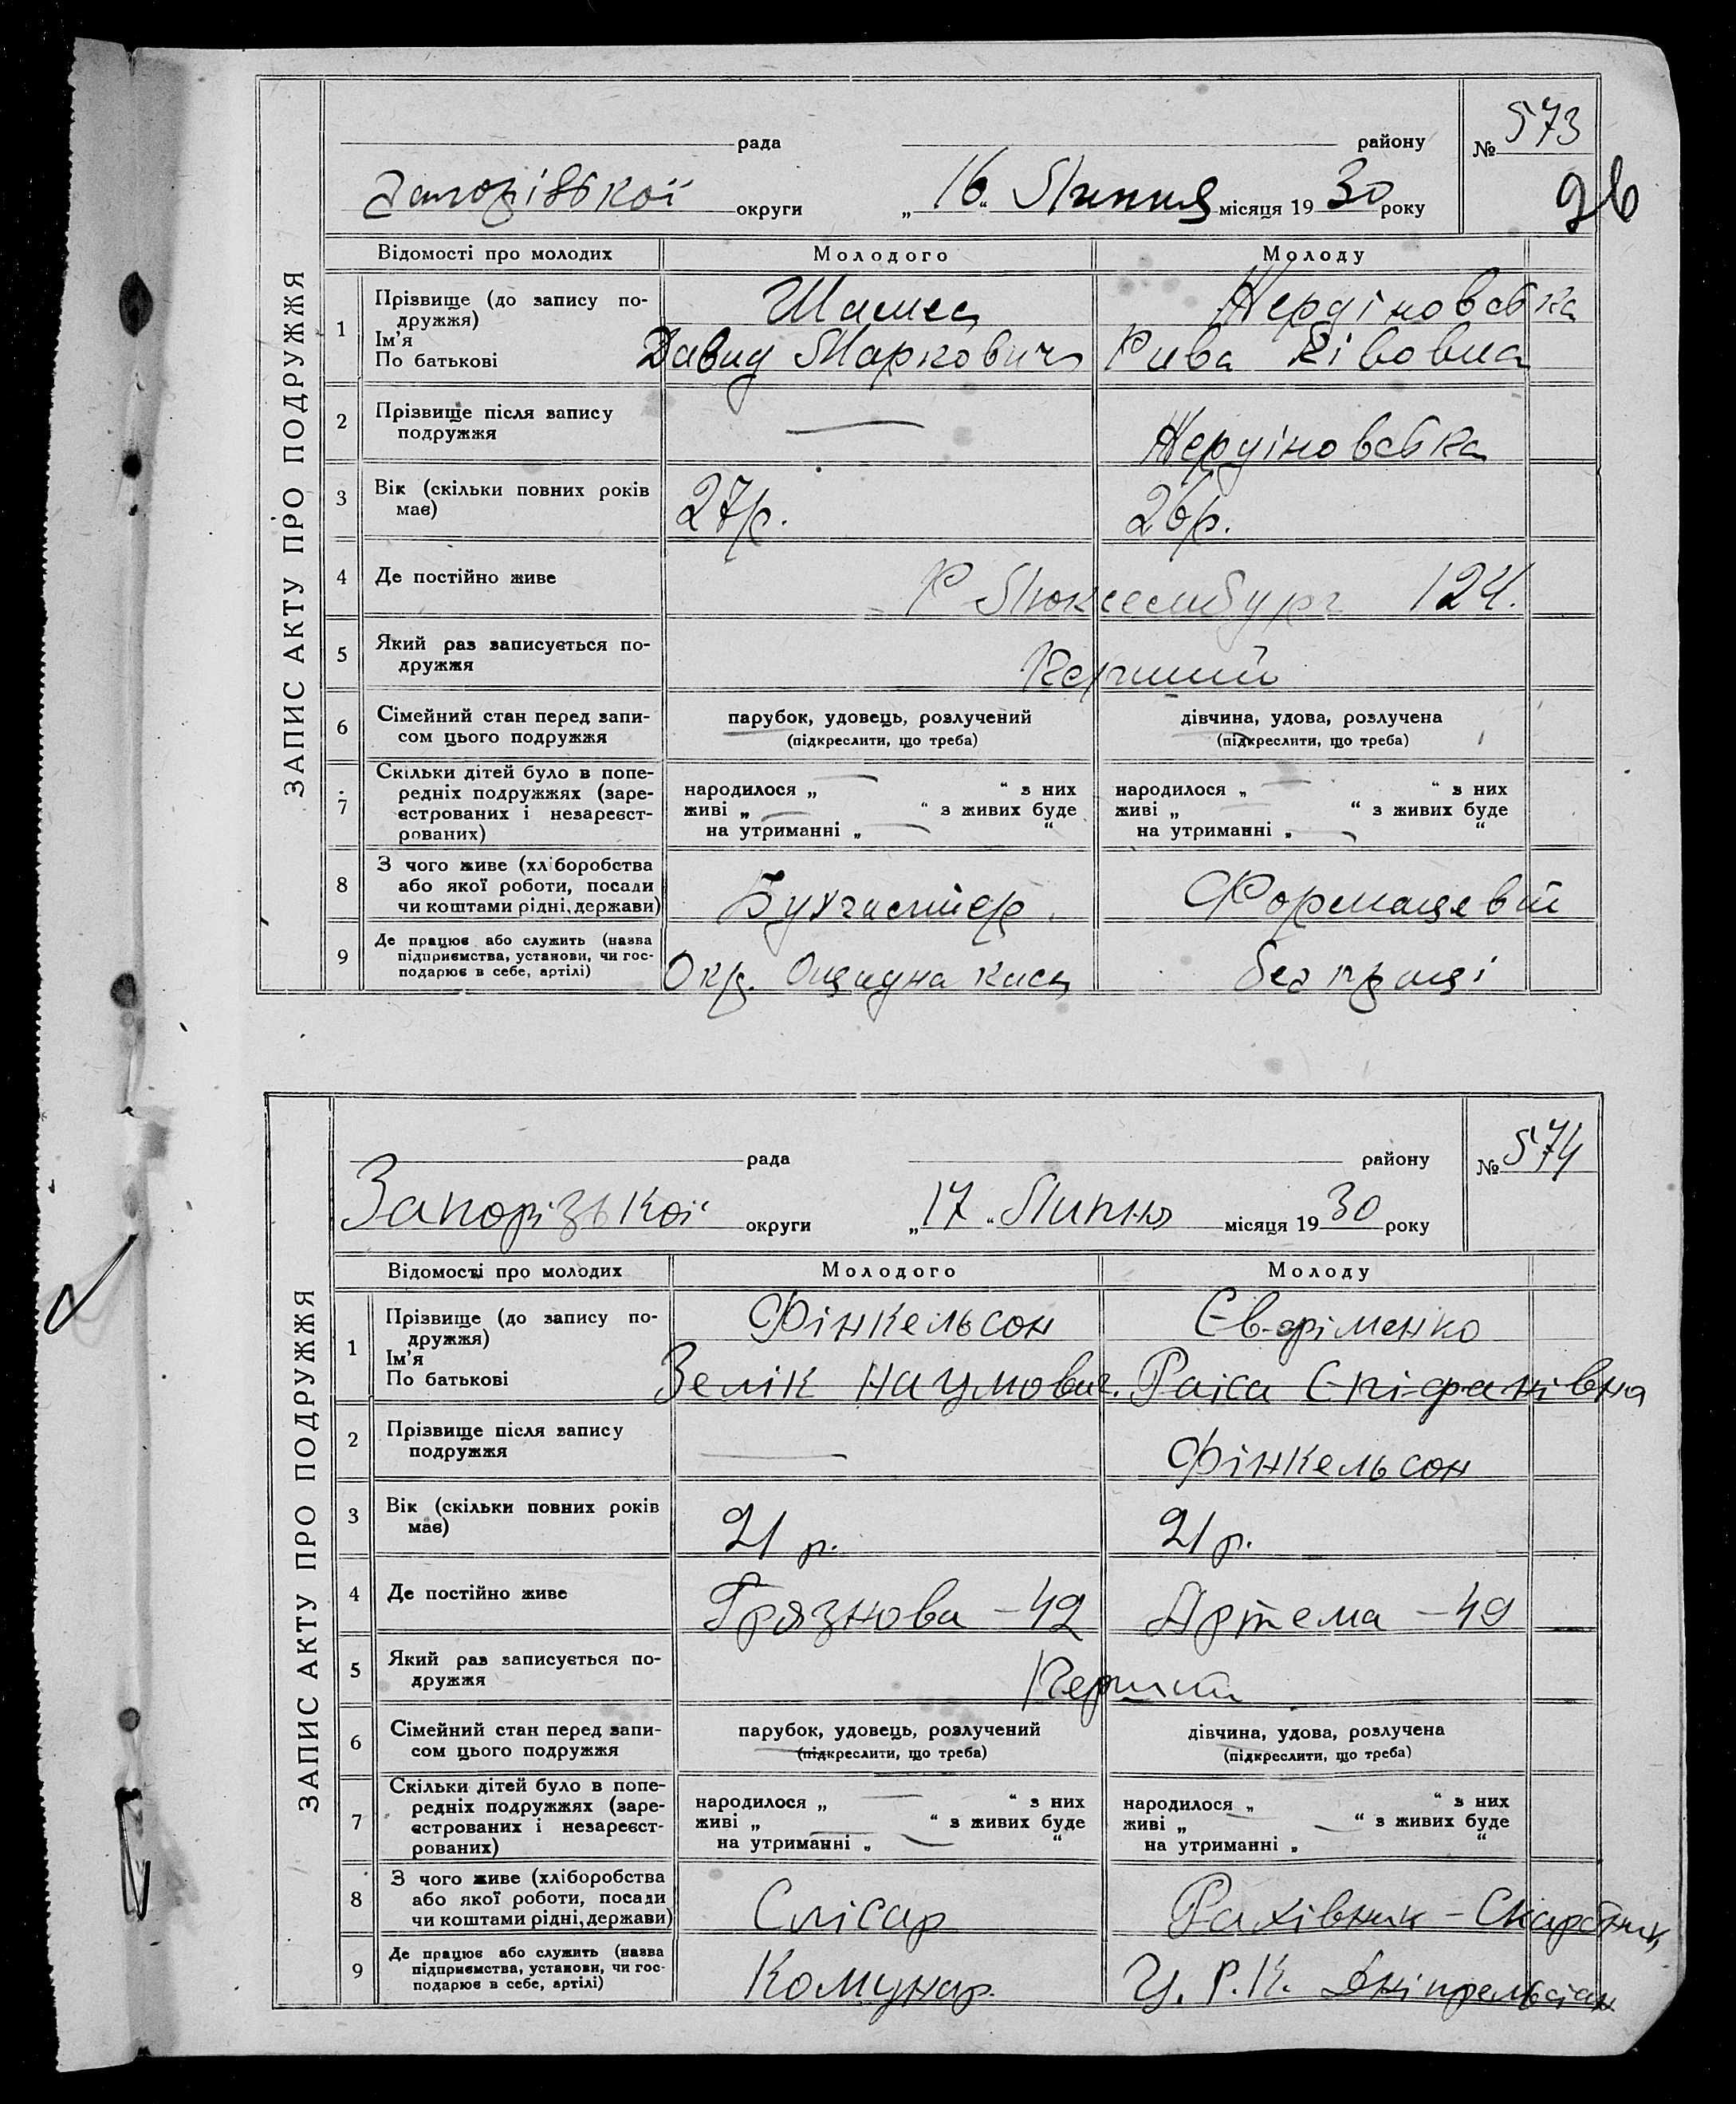 ЗАПИС АКТУ ПРО ПОДРУЖЖЯ
рада
району
№ 573
26
Запорізької округи
„16“ Липня місяця 1930 року
Відомості про молодих
Молодого
Молоду
1
Прізвище (до запису по-
дружжя)
Ім'я
По батькові
Шамес
Давид Маркович
Рива
2
Прізвище після запису
подружжя
—
3
Вік (скільки повних років
має)
27р.
26р.
4
Де постійно живе
Р Люксембург 124.
5
Який раз записується по-
дружжя
Перший
6
Сімейний стан перед запи-
сом цього подружжя
парубок, удовець, розлучений
(підкреслити, що треба)
дівчина, удова, розлучена
(підкреслити, що треба)
7
Скільки дітей було в попе-
редніх подружжях (заре-
єстрованих і незареєст-
рованих)
народилося „ — “ з них
живі „ — “ з живих буде
на утриманні „ — “
народилося „ — “ з них
живі „ — “ з живих буде
на утриманні „ — “
8
З чого живе (хліборобства
або якої роботи, посади
чи коштами рідні, держави)
Бухгалтер.
Формацевт
9
Де працює або служить (назва
підприємства, установи, чи гос-
подарює в себе, артілі)
Окр. Ощадна каса
без праці
ЗАПИС АКТУ ПРО ПОДРУЖЖЯ
рада
району
№ 574
Запорізької округи
„17“ Липня місяця 1930 року
Відомості про молодих
Молодого
Молоду
1
Прізвище (до запису по-
дружжя)
Ім'я
По батькові
Фінкельсон
Зелік Наумович.
Євфіменко
Раіса Єпіфанівна
2
Прізвище після запису
подружжя
—
Фінкельсон
3
Вік (скільки повних років
має)
21 р.
21 р.
4
Де постійно живе
Грязнова – 42
Артема – 49
5
Який раз записується по-
дружжя
Перший
6
Сімейний стан перед запи-
сом цього подружжя
парубок, удовець, розлучений
(підкреслити, що треба)
дівчина, удова, розлучена
(підкреслити, що треба)
7
Скільки дітей було в попе-
редніх подружжях (заре-
єстрованих і незареєст-
рованих)
народилося „ — “ з них
живі „ — “ з живих буде
на утриманні „ — “
народилося „ — “ з них
живі „ — “ з живих буде
на утриманні „ “
8
З чого живе (хліборобства
або якої роботи, посади
чи коштами рідні, держави)
Слісар
Рахівник –
9
Де працює або служить (назва
підприємства, установи, чи гос-
подарює в себе, артілі)
Комунар
Ц. Р. К.